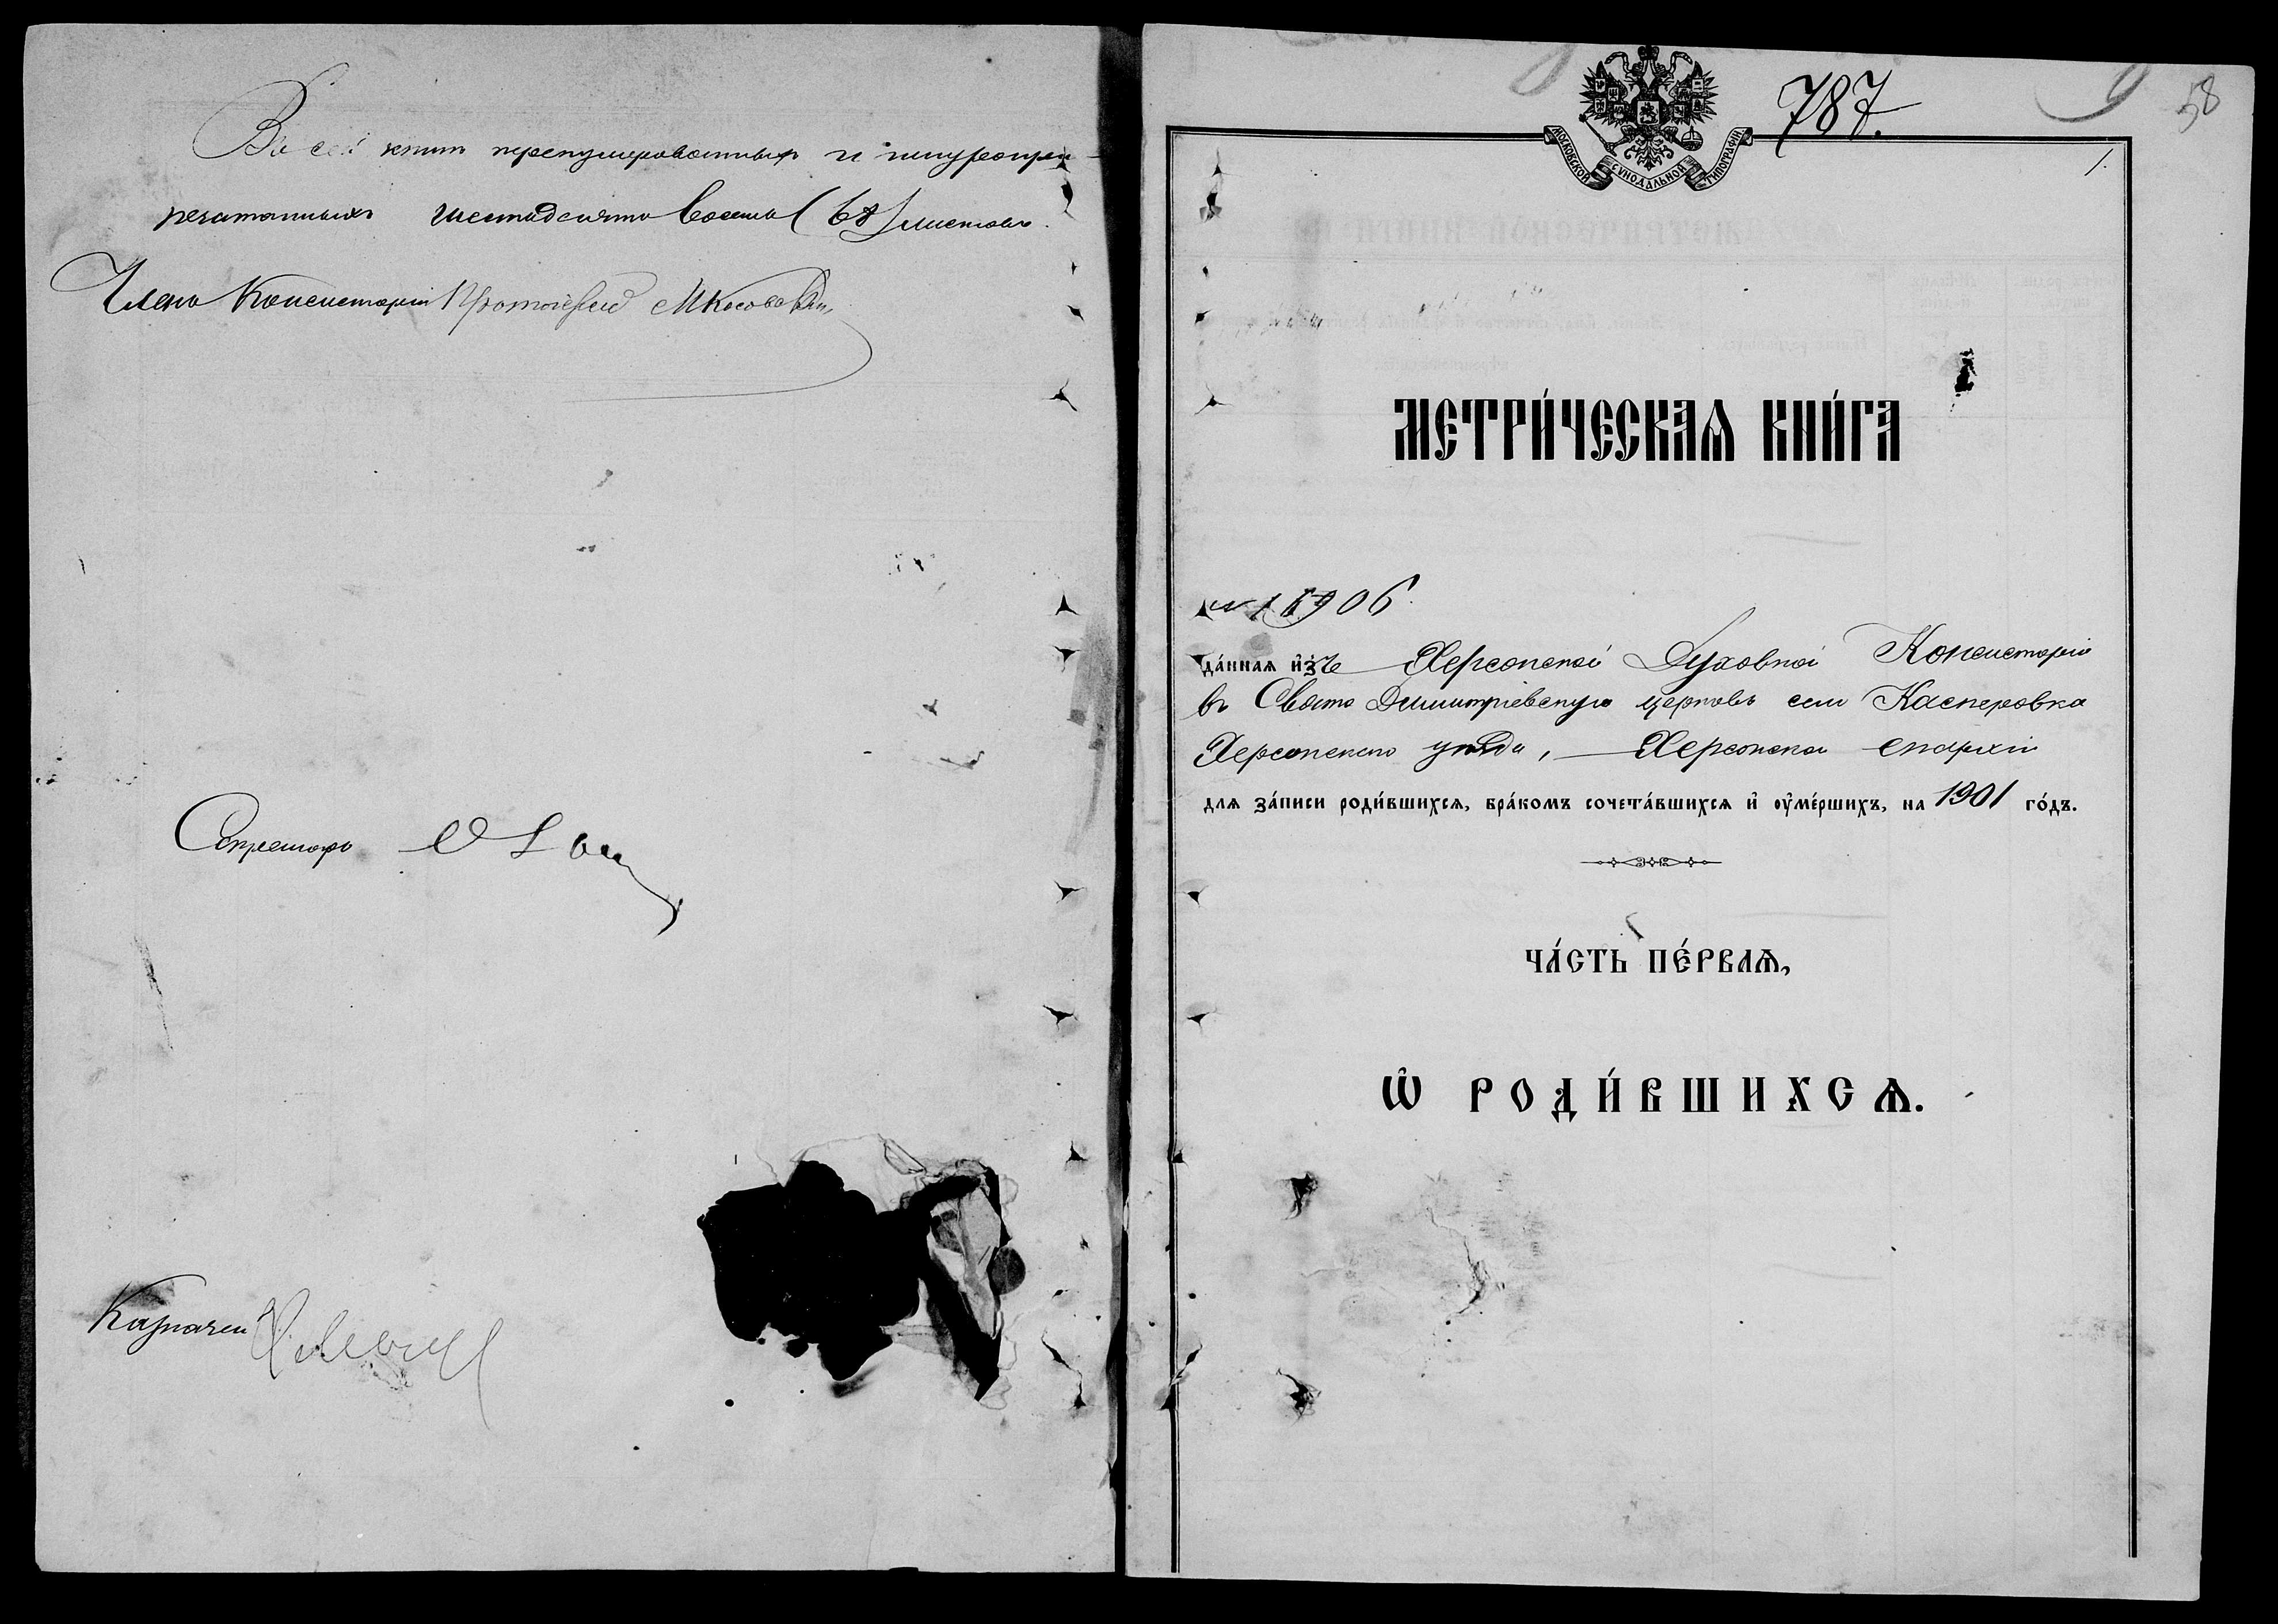 Въ сей книгѣ перенумерованныхъ и шнуропри-
печатанныхъ шестьдесятъ восемь (68) листовъ.
Членъ Консисторіи Протоіерей
Секретарь
Казначей
787.
58
1.
МОСКОВСКОЙ СѴНОДАЛЬНОЙ ТИПОГРАФІИ
МЕТРИ́ЧЕСКАѦ КНИ́ГА
906
да́ннаѧ и҆зъ Херсонской Духовной Консисторіи
въ Свято Димитріевскую церковь села Касперовка
Херсонскаго уѣзда, Херсонской епархіи
длѧ за́писи роди́вшихсѧ, бра́комъ сочета́вшихсѧ и҆ ᲂу҆ме́ршихъ, на 1901 го́дъ.
ЧА́СТЬ ПЕ́РВАѦ,
Ѡ҆ РОДИ́ВШИХСѦ.